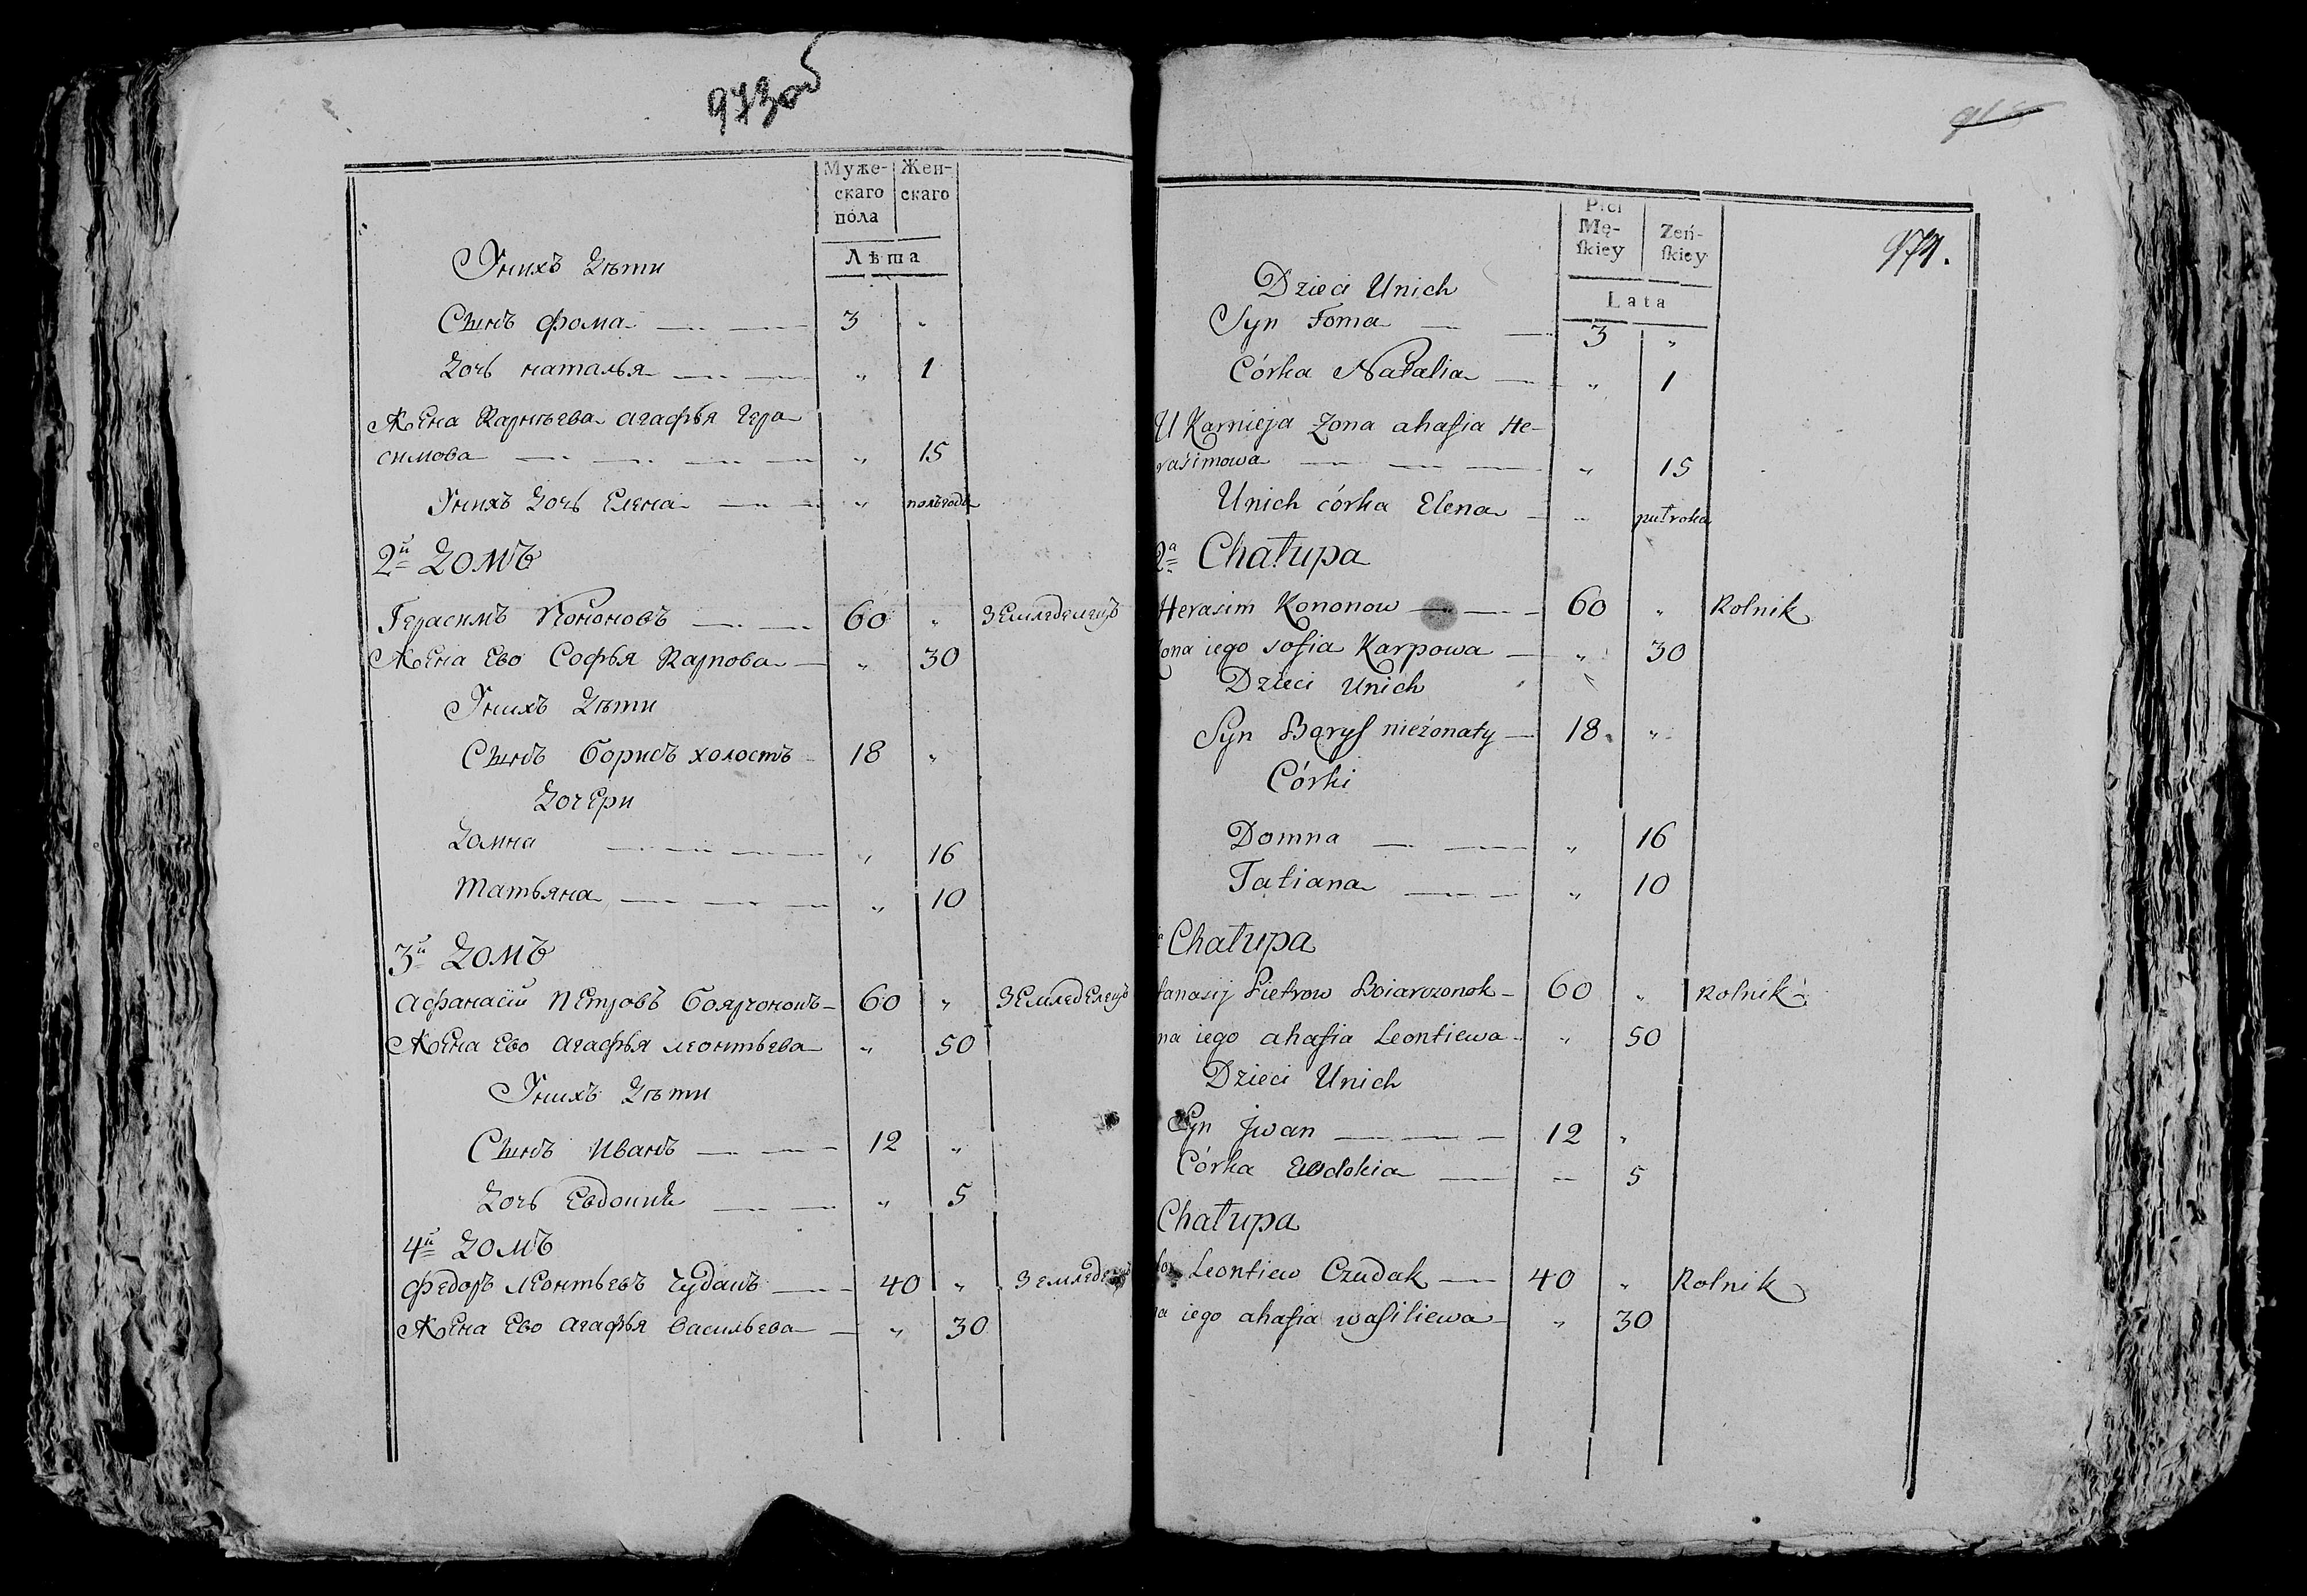 973об
Муже- Жен-
скаго скаго
пола
Лѣта
Унихъ Дѣти
Сынъ фома 3 "
Дочь наталья " 1
Жена Карнѣева агафья Гера
симова " 15
Унихъ Дочь Елена " полъгода
2й Домъ
Герасимъ Кононовъ 60 " Земледелецъ
Жена Ево Софья Карпова " 30
Унихъ Дѣти
Сынъ борисъ холостъ 18 "
Дочери
Домна " 16
Татьяна " 10
3й Домъ
афанасій петровъ боярчонокъ 60 " Земледелецъ
Жена Ево агафья леонтьева " 50
Унихъ Дѣти
Сынъ иванъ 12 "
Дочь Евдокия " 5
4й Домъ
федоръ леонтьевъ чудакъ 40 " Земледе
Жена Ево агафья васильева " 30
974.
Płci
Mę- Zeń-
skiey skiey
Lata
Dzieci Unich
Syn Foma 3 "
Córka Natalia " 1
U Karnieja Zona ahafia He-
rasimowa " 15
Unich córka Elena " puł roka
2a Chałupa
Herasim Kononow 60 " Rolnik
ona iego sofia Karpowa " 30
Dzieci Unich
Syn Borys nieżonaty 18 "
Córki
Domna " 16
Tatiana " 10
Chałupa
fanasij Pietrow Boiarczonok 60 " Rolnik
na iego ahafia Leontiewa " 50
Dzieci Unich
Syn Jwan 12 "
Córka Ewdokia " 5
Chałupa
Leontiew Czudak 40 " Rolnik
na iego ahafia wasiliewa " 30